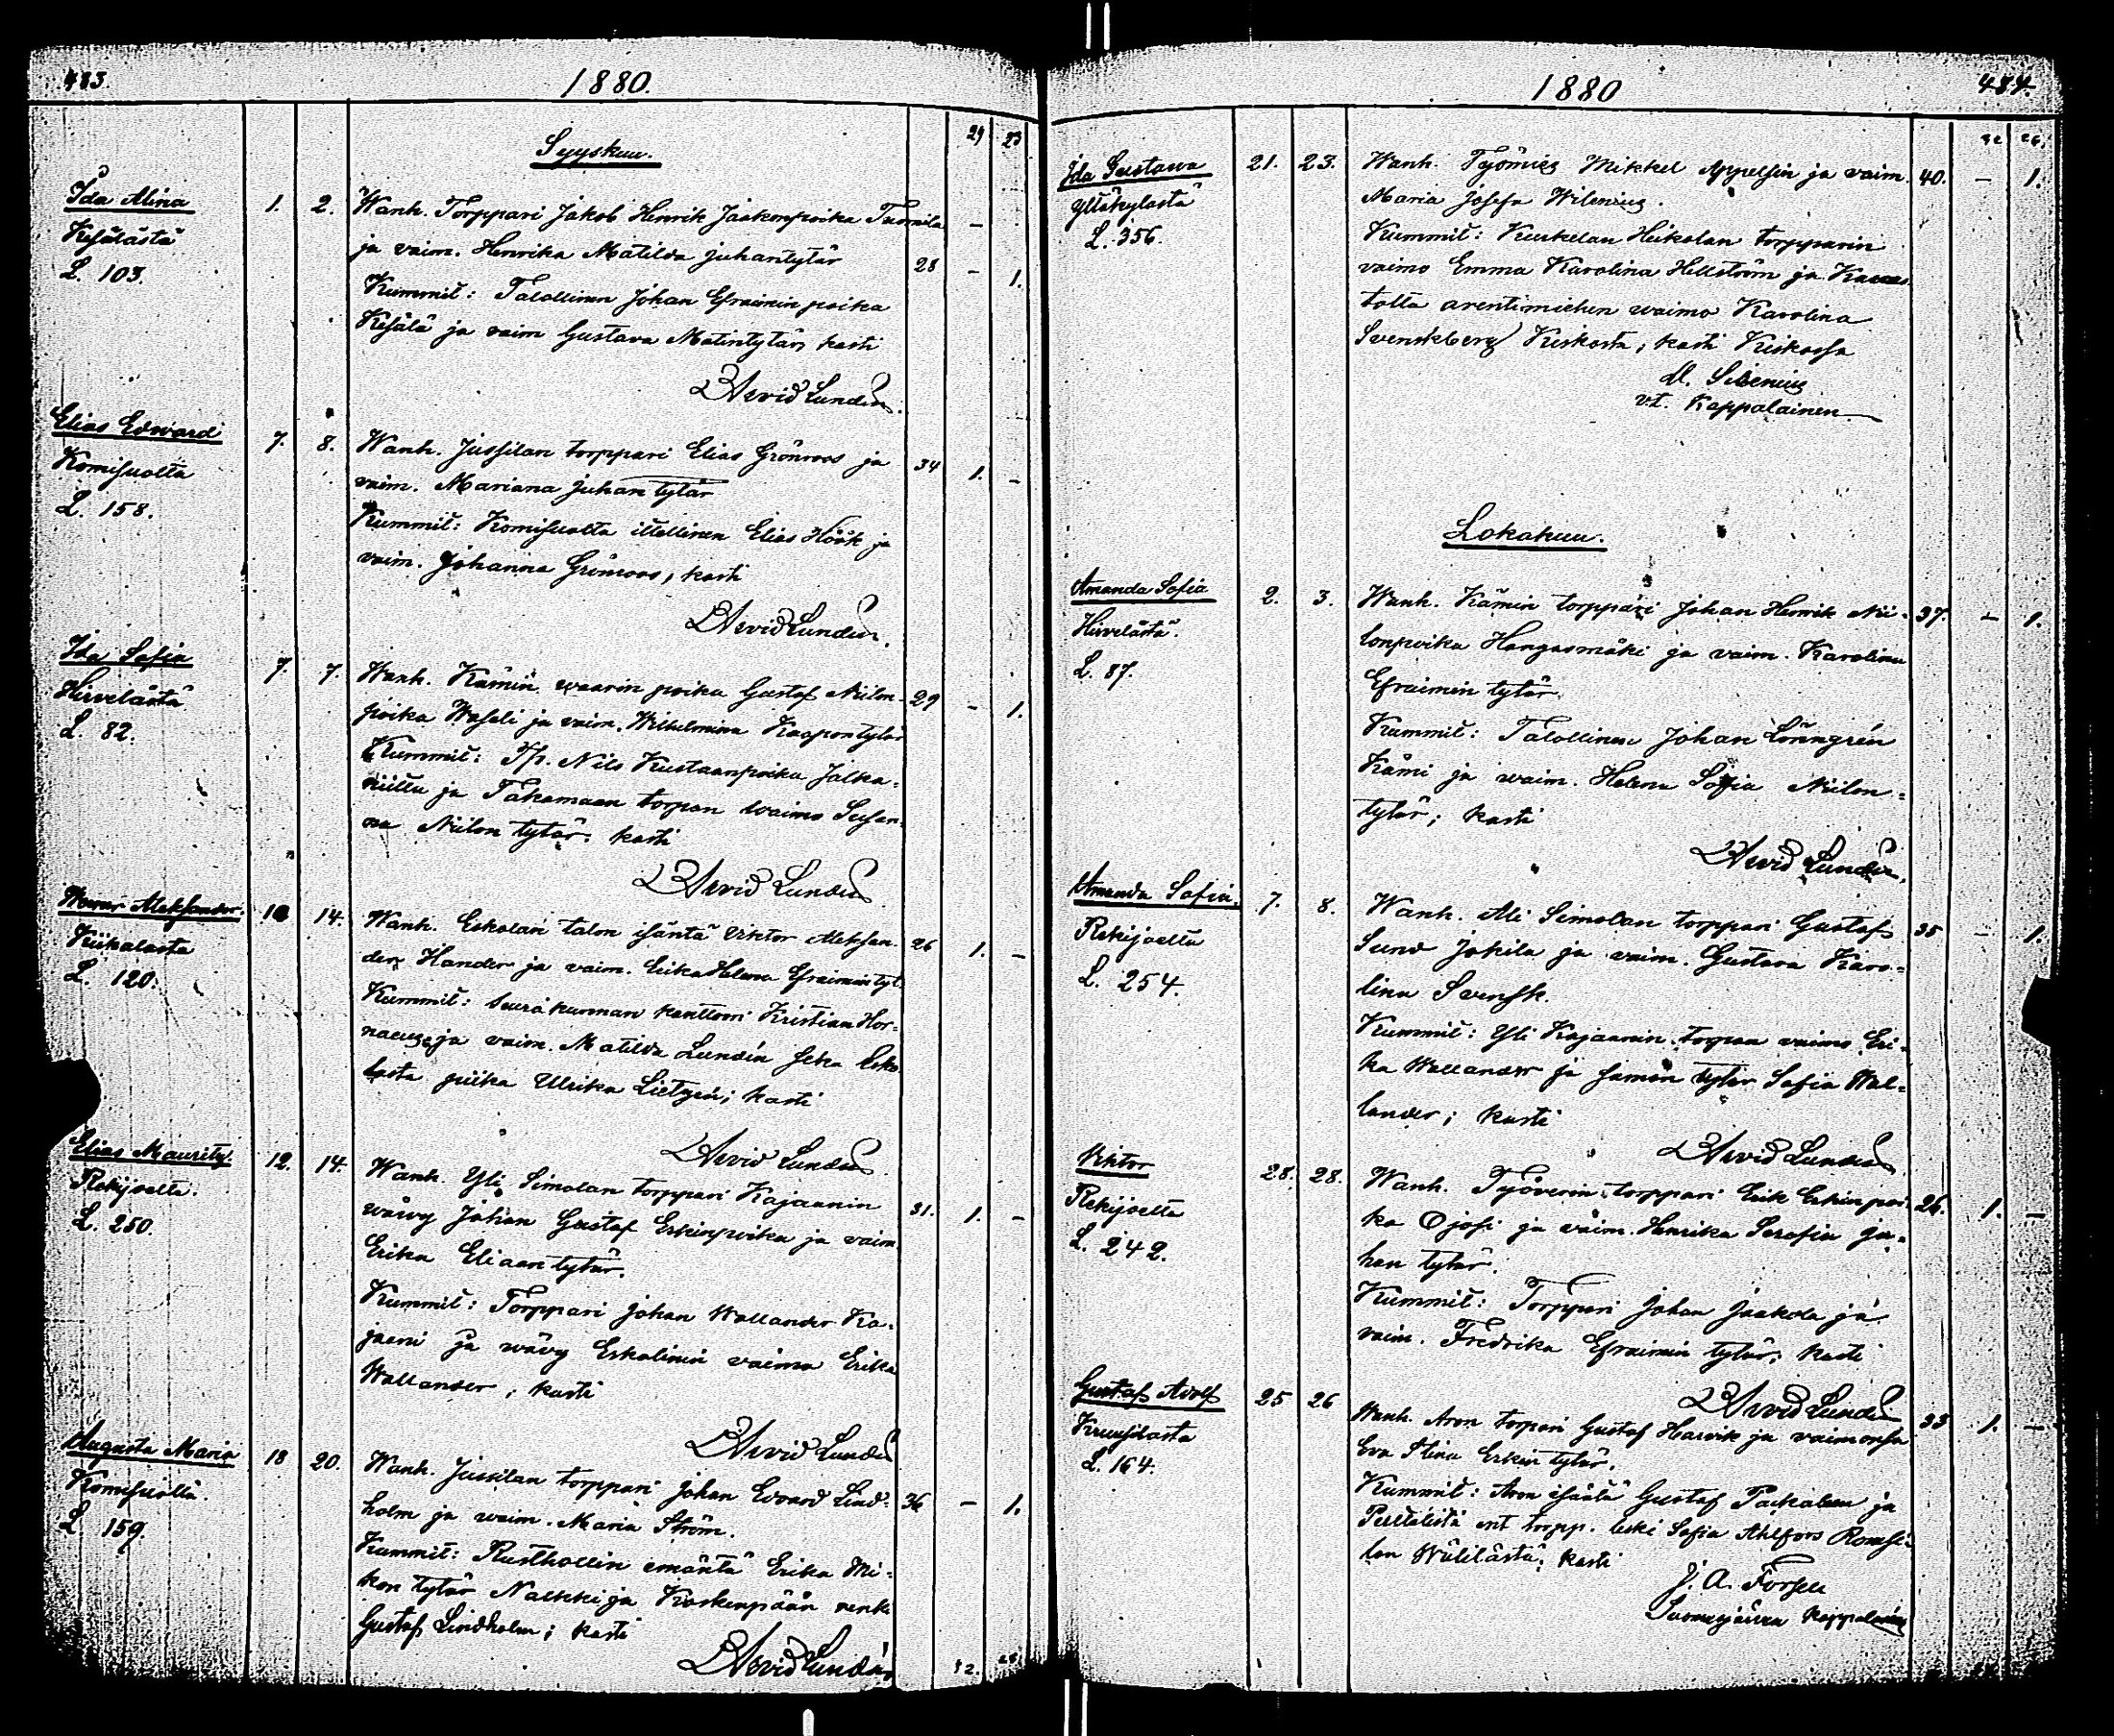 483.
1880.
Syyskuu.
29 23
Ida Alina
Kesälästä
L. 103.
1. 2.
Wanh. Torppari Jakob Henrik Jaakonpoika Tuomila
ja vaim. Henrika Matilda Juhantytär
28 - 1.
Kummit: Talollinen Johan Efraimin poika
Kesälä ja vaim Gustava Matintytär, kasti
Arvid Lundén.
Elias Edward
Komisuolta
L. 158.
7. 8.
Wanh. Jussilan torppari Elias Grönroos ja
vaim. Mariana Juhantytär
34 1. -
Kummit: Komisuolta itellinen Elias Höök ja
vaim. Johanna Grönroos, kasti
Arvid Lundén.
Ida Sofia
Hirvelästä
L. 82.
7. 7.
Wanh. Kämin waarin poika Gustaf Niilon-
poika Waseli ja vaim. Wilhelmina Kaapontytär
29 - 1.
Kummit: Nils Kustaanpoika Jalka-
niittu ja Takamaan torpan waimo Susan-
na Niilon tytär: kasti
Arvid Lundén
Aleksander.
Kiikalasta
L. 120.
14.
Wanh. Eskolan talon isäntä Viktor Aleksan-
der Hander ja vaim. Erika Helena Efraimintyt.
26 1. -
Kummit: Seurakunnan kanttoori Kristian Hor-
naeus ja vaim. Matilda Lundén seka Esko
lasta piika Ulrika Lietzén; kasti
Arvid Lundén
Elias Mauritz
Rekijoelta.
L. 250.
12. 14.
Wanh. Yli Simolan torppari Kajaanin
wävy Johan Gustaf Erkinpoika ja vaim
Erika Eliaantytär.
31. 1. -
Kummit: Torppari Johan Wallander Ka-
jaani ja wävy Eskolinin vaimo Erika
Wallander, kasti
Arvid Lundén
Augusta Maria
Komisuolta.
L 159.
18 20.
Wanh. Jussilan torppari Johan Edvard Lind-
holm ja waim. Maria Ström.
36 - 1.
Kummit: Rusthollin emäntä Erika Mi-
kon tytär Nalkki ja Koskenpään renki
Gustaf Lindholm; kasti
Arvid Lundén
1880
484.
Ida Gustava
Yltäkylästä
L. 356.
21. 23.
Wanh. Työmies Mikkel Appelsin ja vaim.
Maria Josefa Wilenius.
40. - 1.
Kummit: Kurkelan Heikolan torpparin
vaimo Emma Karolina Hellström ja
tolta arentimiehen waimo Karolina
Svenskberg Kiskosta, kasti Kiskossa
vt. Kappalainen
Lokakuu.
Amanda Sofia
Hirvelästä.
L. 87.
2. 3.
Wanh. Kämin torppari Johan Henrik Nii-
lonpoika Hangasmäki ja vaim. Karolina
Efraimin tytär.
37. - 1.
Kummit: Talollinen Johan Lönngrén
Kämi ja waim. Helena Sofia Niilon-
tytär; kasti
Arvid Lundén.
Amanda Sofia.
Rekijoelta
L. 254.
7. 8.
Wanh. Ali Simolan torppari Gustaf
Sund Jokila ja vaim. Gustava Karo-
lina Svensk.
35 - 1.
Kummit: Yli Kajaanin torpan vaimo Eri-
ka Wallander ja saman tytär Sofia Wal-
lander; kasti
Arvid Lundén
Viktor
Rekijoelta
L. 242.
28. 28.
Wanh. Työverin torppari Erik Erkinpoi-
ka Ojosi ja vaim. Henrika Serafia Ju-
han tytär.
26. 1. -
Kummit: Torppari Johan Jaakola ja
vaim. Fredrika Efraimin tytär, kasti
Arvid Lundén
Gustaf Adolf
Kruusilasta
L. 164.
25 26
Wanh. Aron torpari Gustaf Harvik ja vaimonsa
Eva Stina Erkin tytär.
33 1. -
Kummit: Aron isäntä Gustaf Packalen ja
ent torpp. leski Sofia Ahlfors Romsi-
lan Wälilästä, kasti
J. A. Forsell
Suomusjärven kappalainen